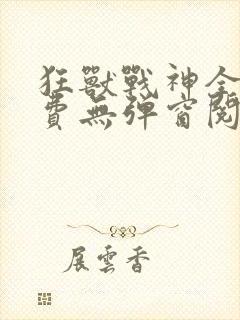 狂獸戰神全
費無彈窗閱
展雲香